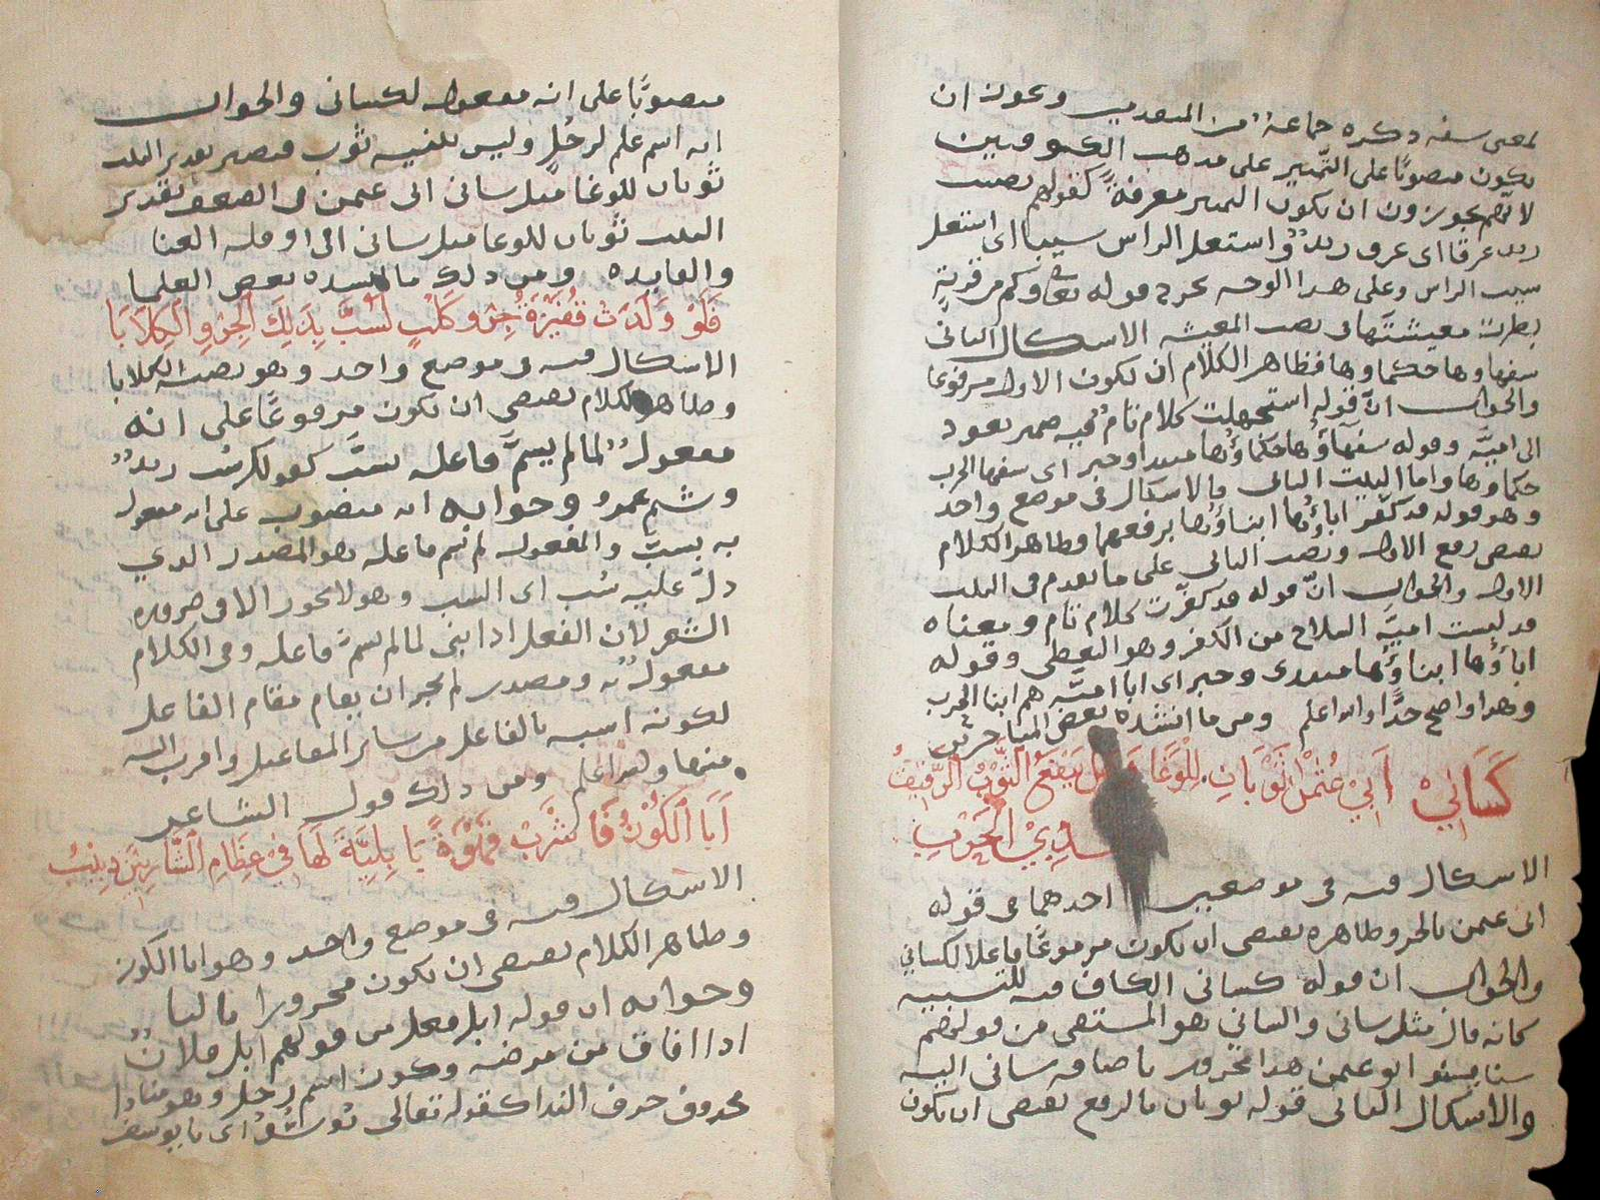 لمعنى سفه ذكره جماعة من المتقدمين ويجوز ان
يكون منصوبًا على التمييز على مذهب الكوفيين
لانهم يجوزون ان يكون التمييز معرفة كقولهم تصبب
زيد عرقا اى عرق زيد واشتعل الراس شيبا اى اشتعل
شيب الراس وعلى هذا الوجه يخرج قوله تعا وكم من قرية
بطرت معيشتها فى نصب المعيشه الاشكال الثانى
سفهاوها حكماوها فظاهر الكلام ان تكون الاول مرفوعا
والجواب انّ قوله استجهلت كلام تام فيه ضمير يعود
الى اميّة وقوله سفهاؤها حكماؤها مبتدا وخبر اى سفها الحرب
حكماوها واما البيت الثانى فالاشكال فى موضع واحد
وهو قوله قد كفّر اباؤها ابناؤها برفعهما وظاهر الكلام
يقتضى رفع الاول ونصب الثانى على ما تقدم فى البيت
الاول والجواب انّ قوله قد كفّرت كلام تام ومعناه
قد لبست اميّة السلاح من الكفر وهو التغطى وقوله
اباؤها ابناؤها مبتدى وخبر اى ابا اميّة هم ابنا الحرب
وهذا واضح جدًّا والله اعلم ومن ما انشده بعض المتاخرين
كَسَانِيْ اَبَيْ عُثْمٰنَ ثَوْبَانِ لِلْوَغَا يَنفَعُ الثَّوْبُ الرَّقِيْقُ
لَدِيْ الحَرْبِ
الاشكال فيه فى موضعين احدهما فى قوله
ابى عثمن بالجر وظاهره يقتضى ان يكون مرفوعًا فاعلا لكسانى
والجواب ان قوله كسانى الكاف فيه للتشبيه
كانه قال مثل سانى والسانى هو المستقى من قولهم
سنا يسنو ابو عثمن هذا مجرور باضافه سانى اليه
والاشكال الثانى قوله ثوبان بالرفع يقتضى ان يكون
منصوبًا على انه مفعول لكسانى والجواب
انه اسم علم لرجُل وليس بتثنيه ثوب فيصير تقدير البيت
ثوبان للوغا مثل سانى ابى عثمن فى الضعف تقدير
البيت ثوبان للوغا مثل سانى ابى اوقله الغنا
والفايده ومن ذلك ما انشده بعض العلما
فَلَوْ وَلَدَتْ قُفَيْرَةُ جِرْوَ كَلْبٍ لَسُبَّ بِذٰلِكَ الْجِرْوِ الْكِلاَبَا
الاشكال فيه فى موضع واحد وهو نصبه الكلابا
وظاهر الكلام يقتضى ان يكون مرفوعًا على انه
مفعول لما لم يسمَّ فاعله بسُبَّ كقولك ضُرب زيد
وشتم عمرو وجوابه انه منصوب على انه مفعول
به بسبّ والمفعول لم يسم فاعله هو المصدر الذي
دلّ عليه سُب اى السب وهو لا يجوز الا فى ضروره
الشعر لان الفعل اذا بنى لما لم يسمّ فاعله وفى الكلام
مفعول به ومصدر لم يجز ان يقام مقام الفاعل
لكونه اشبه بالفاعل من سائر المفاعيل واقرب اليه
منها والله اعلم ومن ذلك قول الشاعر
اَبَا الْكُوْزُ فَاشْرَبْ قَهْوَةً بَابِلِيَّةً لَهَا فِيْ عِظَامِ الشَّارِبِيْنَ دَبِيْبُ
الاشكال فيه فى موضع واحد وهو ابا الكوز
وظاهر الكلام يقتضى ان يكون مجرورا
وجوابه ان قوله ابل فعل من قولهم ابل فلان
اذا افاق من مرضه وكوز اسم رجل وهو منادا
محذوف حرف الندا كقوله تعالى يُوسُفُ اى يا يوسف